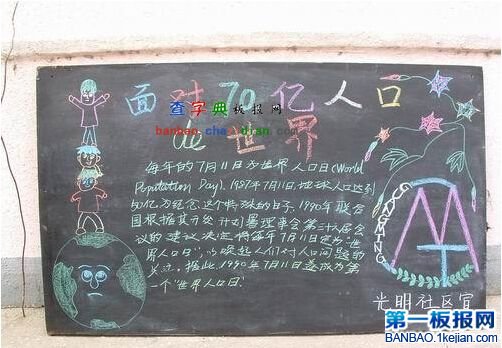 面对70亿人口
查字典板报网
banbao.chazidian.com
的世界
每年的7月11日为世界人口日(World
Population Day). 1987年7月11日,地球人口达到
50亿.为纪念这个特殊的日子,1990年联合
国根据其开发计划署理事会第三十六届会
议的建议决定将每年7月11日定为"世
界人口日",以唤起人们对人口问题的
关注。据此1990年7月11日遂成为第
一个"世界人口日."
GUANGMING
光明社区宣
第一板报网
BANBAO.1kejian.com